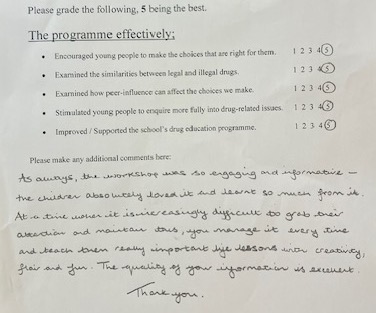 Please grade the following, 5 being the best.
The programme effectively;
• Encouraged young people to make the choices that are right for them. 1 2 3 4 5
• Examined the similarities between legal and illegal drugs. 1 2 3 4 5
• Examined how peer-influence can affect the choices we make. 1 2 3 4 5
• Stimulated young people to enquire more fully into drug-related issues. 1 2 3 4 5
• Improved / Supported the school's drug education programme. 1 2 3 4 5
Please make any additional comments here:
As always, the workshop was so engaging and informative –
the children absolutely loved it and learnt so much from it.
At a time when it is increasingly difficult to grab their
attention and maintain this, you manage it every time
and teach them really important life lessons with creativity,
flair and fun. The quality of your information is excellent.
Thank you.